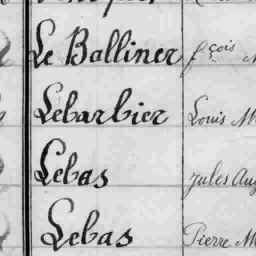 Le Balliner fçois
Lebarbier Louis M
Lebas Jules Aug
Lebas Pierre M